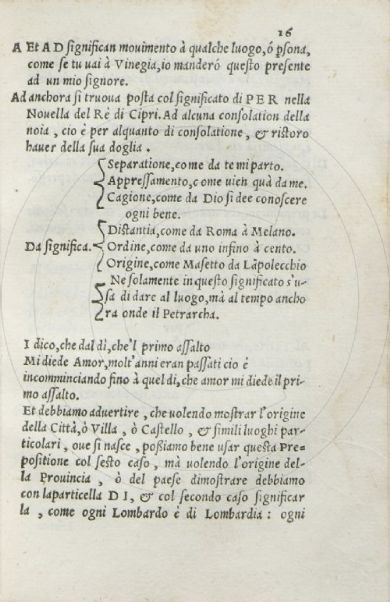 16
A Et A D significan mouimento à qualche luogo, ó psona,
come se tu uai à Vinegia, io manderó questo presente
ad un mio signore.
Ad anchora si truoua posta col significato di PER nella
Nouella del Rè di Cipri. Ad alcuna consolation della
noia, cio è per alquanto di consolatione, & ristoro
hauer della sua doglia.
Separatione, come da te mi parto.
Appressamento, come uien quà da me.
Cagione, come da Dio si dee conoscere
ogni bene.
Distantia, come da Roma à Melano.
Da significa. Ordine, come da uno infino à cento.
Origine, come Masetto da Lãpolecchio
Ne solamente in questo significato s'u-
sa di dare al luogo, mà al tempo ancho
ra onde il Petrarcha.
I dico, che dal dì, che'l primo assalto
Mi diede Amor, molt'anni eran passati cio è
incomminciando fino à quel di, che amor mi diede il pri-
mo assalto.
Et debbiamo aduertire, che uolendo mostrar l'origine
della Città, ò Villa, ò Castello, & simili luoghi par-
ticolari, oue si nasce, possiamo bene usar questa Pre-
positione col sesto caso, mà uolendo l'origine del-
la Prouincia, ò del paese dimostrare debbiamo
con laparticella D I, & col secondo caso significar
la, come ogni Lombardo è di Lombardia: ogni